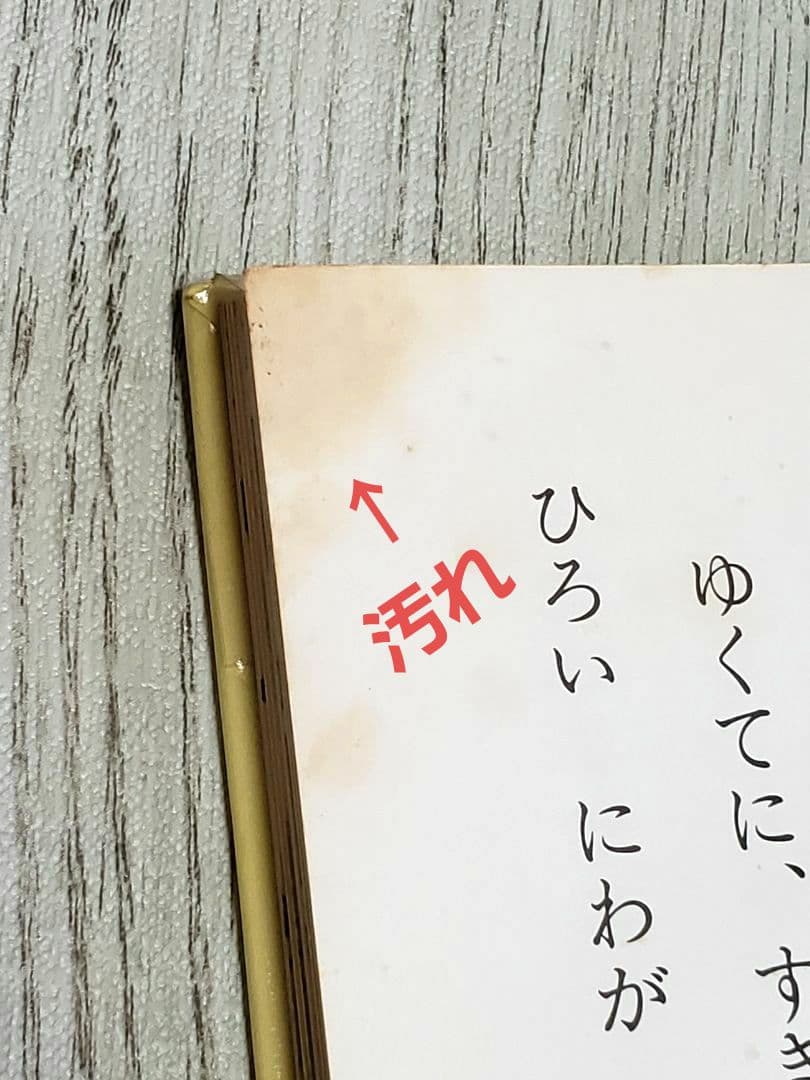 ゆくてに、すき
ひろい にわが
汚れ